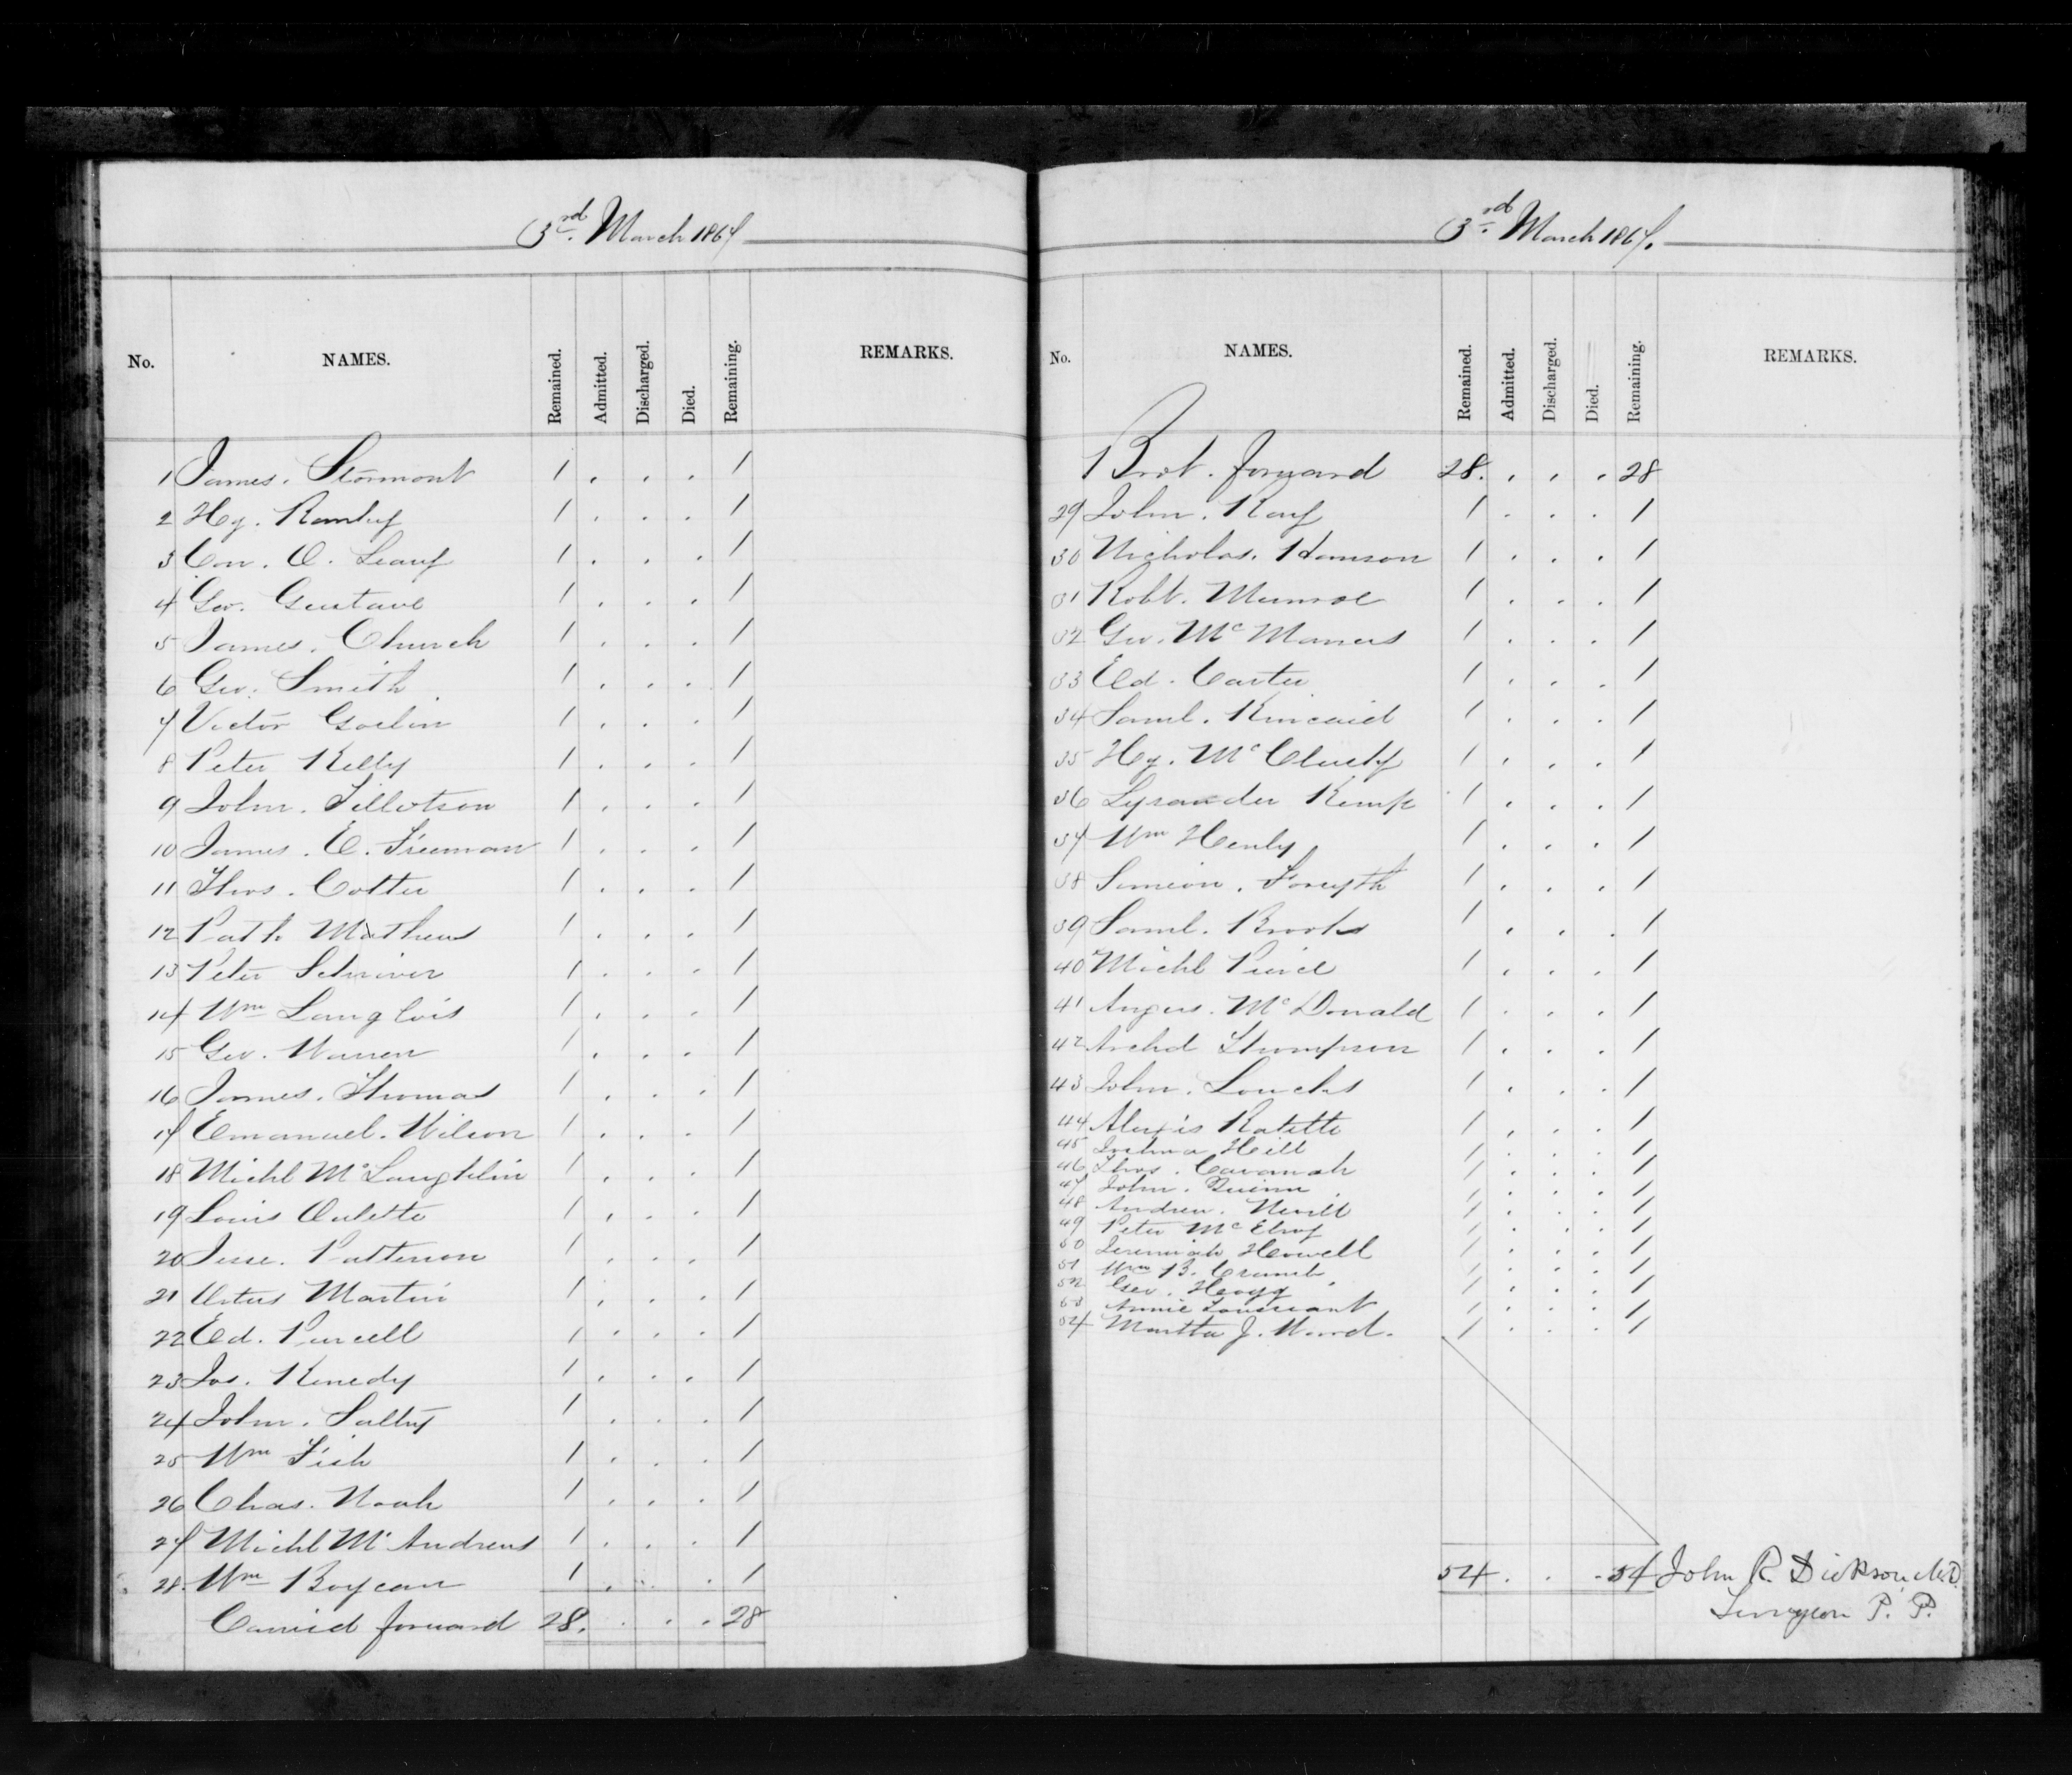 3rd. March 1867
No. NAMES. Remained. Admitted. Discharged. Died. Remaining. REMARKS.
1 James. Stormont 1 . . . 1
2 Hy. Romley 1 . . . 1
3 Con. O. Leary 1 . . . 1
4 Geo. Gustave 1 . . . 1
5 James. Church 1 . . . 1
6 Geo. Smith 1 . . . 1
7 Victor Goslin 1 . . . 1
8 Peter Kelly 1 . . . 1
9 John. Tillotson 1 . . . 1
10 James. E. Freeman 1 . . . 1
11 Thos. Cotter 1 . . . 1
12 Patk Mathews 1 . . . 1
13 Peter Schriver 1 . . . 1
14 Wm Langlois 1 . . . 1
15 Geo. Warren 1 . . . 1
16 James. Thomas 1 . . . 1
17 Emanuel. Wilson 1 . . . 1
18 Michl McLaughlin 1 . . . 1
19 Louis Oulette 1 . . . 1
20 Jesse. Patterson 1 . . . 1
21 Martin 1 . . . 1
22 Ed. Purcell 1 . . . 1
23 Jos. Kenedy 1 . . . 1
24 John. Salty 1 . . . 1
25 Wm Fish 1 . . . 1
26 Chas. Noah 1 . . . 1
27 Michl McAndrews 1 . . . 1
28. Wm Boycan 1 . . . 1
Carried forward 28. . . . 28
3rd. March 1867.
No. NAMES. Remained. Admitted. Discharged. Died. Remaining. REMARKS.
Brot. forward 28. . . . 28
29 John. Kay 1 . . . 1
30 Nicholas. Hamson 1 . . . 1
31 Robt. Munroe 1 . . . 1
32 Geo. McManus 1 . . . 1
33 Ed. Carter 1 . . . 1
34 Saml. Kincaid 1 . . . 1
35 Hy. McClusky 1 . . . 1
36 Lysander Kemp 1 . . . 1
37 Wm Henly 1 . . . 1
38 Simeon. Forsyth 1 . . . 1
39 Saml. Brooks 1 . . . 1
40 Michl 1 . . . 1
41 Angus. McDonald 1 . . . 1
42 Archd Thompson 1 . . . 1
43 John. Loucks 1 . . . 1
44 Alexis Ratette 1 . . . 1
45 Joshua Hill 1 . . . 1
46 Thos. Cavanah 1 . . . 1
47 John. Quinn 1 . . . 1
48 Andrew. Nevill 1 . . . 1
49 Peter McElroy 1 . . . 1
50 Jeremiah Howell 1 . . . 1
51 Wm B. Crumb 1 . . . 1
52 Geo. Hogg 1 . . . 1
53 Annie Toussaant 1 . . . 1
54 Martha J. Ward. 1 . . . 1
54. . . . 54 John R. Dickson M.D.
Surgeon P. P.